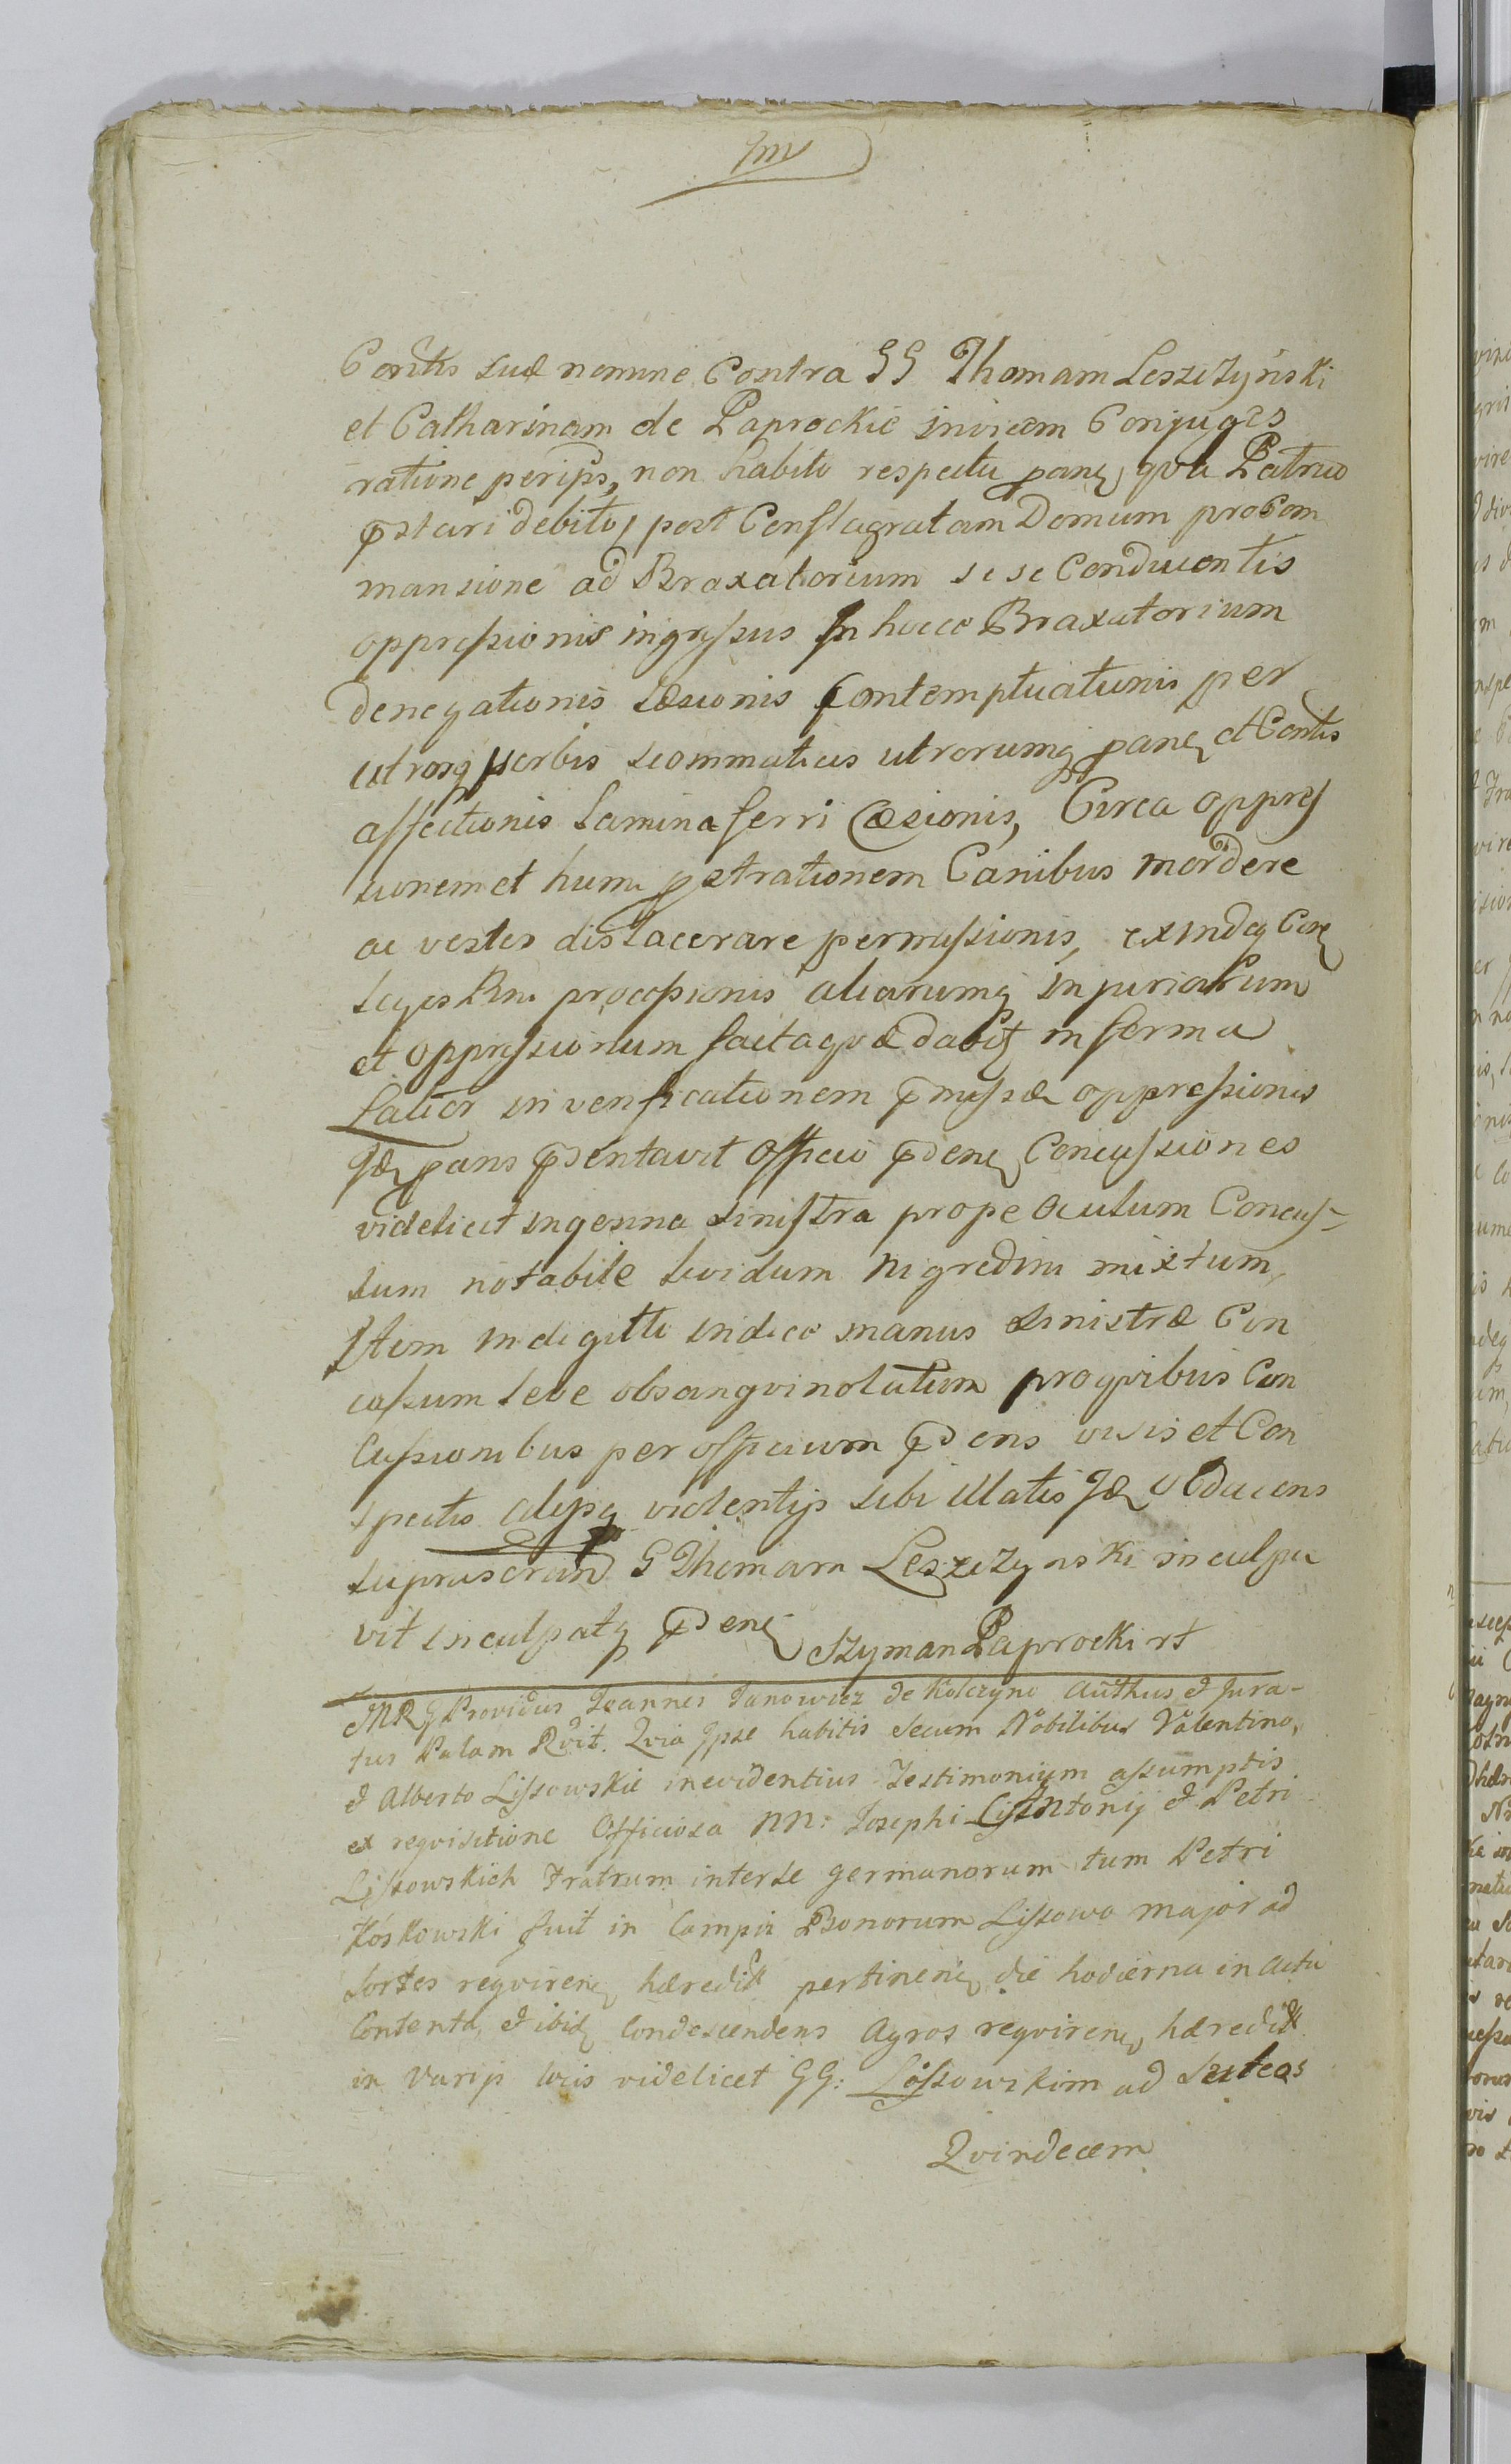 Contis suæ nomine Contra GG Thomam Leszczyński
et Catharinam de Paprockie invicem Conjuges
ratione per ipsos, non habito respectu pane, qva Patruo
pstari debito, post Conflagratam Domum pro Com
mansione ad Braxatorium sese Conducentis
oppressionis ingressus in hocce Braxatorium
denegationis læsionis Contemptuationis per
utrosq verbis scommaticis utrorumq pane, et Contis
affectionis Lamina ferri Cæsionis, Circa oppres
sionem et humi pstrationem Canibus mordere
ac vestes dislacerare permissionis, exindeq Cone
Leges Rni processionis aliarumq injuriarum
et oppressionum facta qvæ dabit in forma
Latior in verificationem pmissæ oppressionis
Jdem pans psentavit Officio pdene Concussiones
videlicet in gesina sinistra prope oculum Concus=
sum notabile lividum nigredini mixtum,
Item in digitto indice manus sinistræ Con
cussum leve obsangvinolatum pro qvibus Con
cussionibus per officium psens visis et Con
spectis alysq violentijs sibi illatis Jdem obducens
suprascran G Thomam Leszczynski inculpa
vit inculpatq pdene Szyman Paprocki rt
MRG Providus Joannes Janowicz de Kolczyno Authus et Jura-
tus Palam Rvit. Qvia Jpse habitis secum Nobilibus Valentino,
et Alberto Lissowskie in evidentius Testimonium assumptis
ex reqvisitione Officiosa NN: Josephi Antonij et Petri
Lissowskich Fratrum inter se germanorum tum Petri
Kóskowski fuit in Campis Bonorum Lissowo major ad
Sortes reqvirene, hæredit pertinene, die hodierna in actu
Contenta, et ibid, Condescendens Agros reqvirene, hæredit
in varijs locis videlicet GG: Lissowskim ad Sulcos
Qvindecem